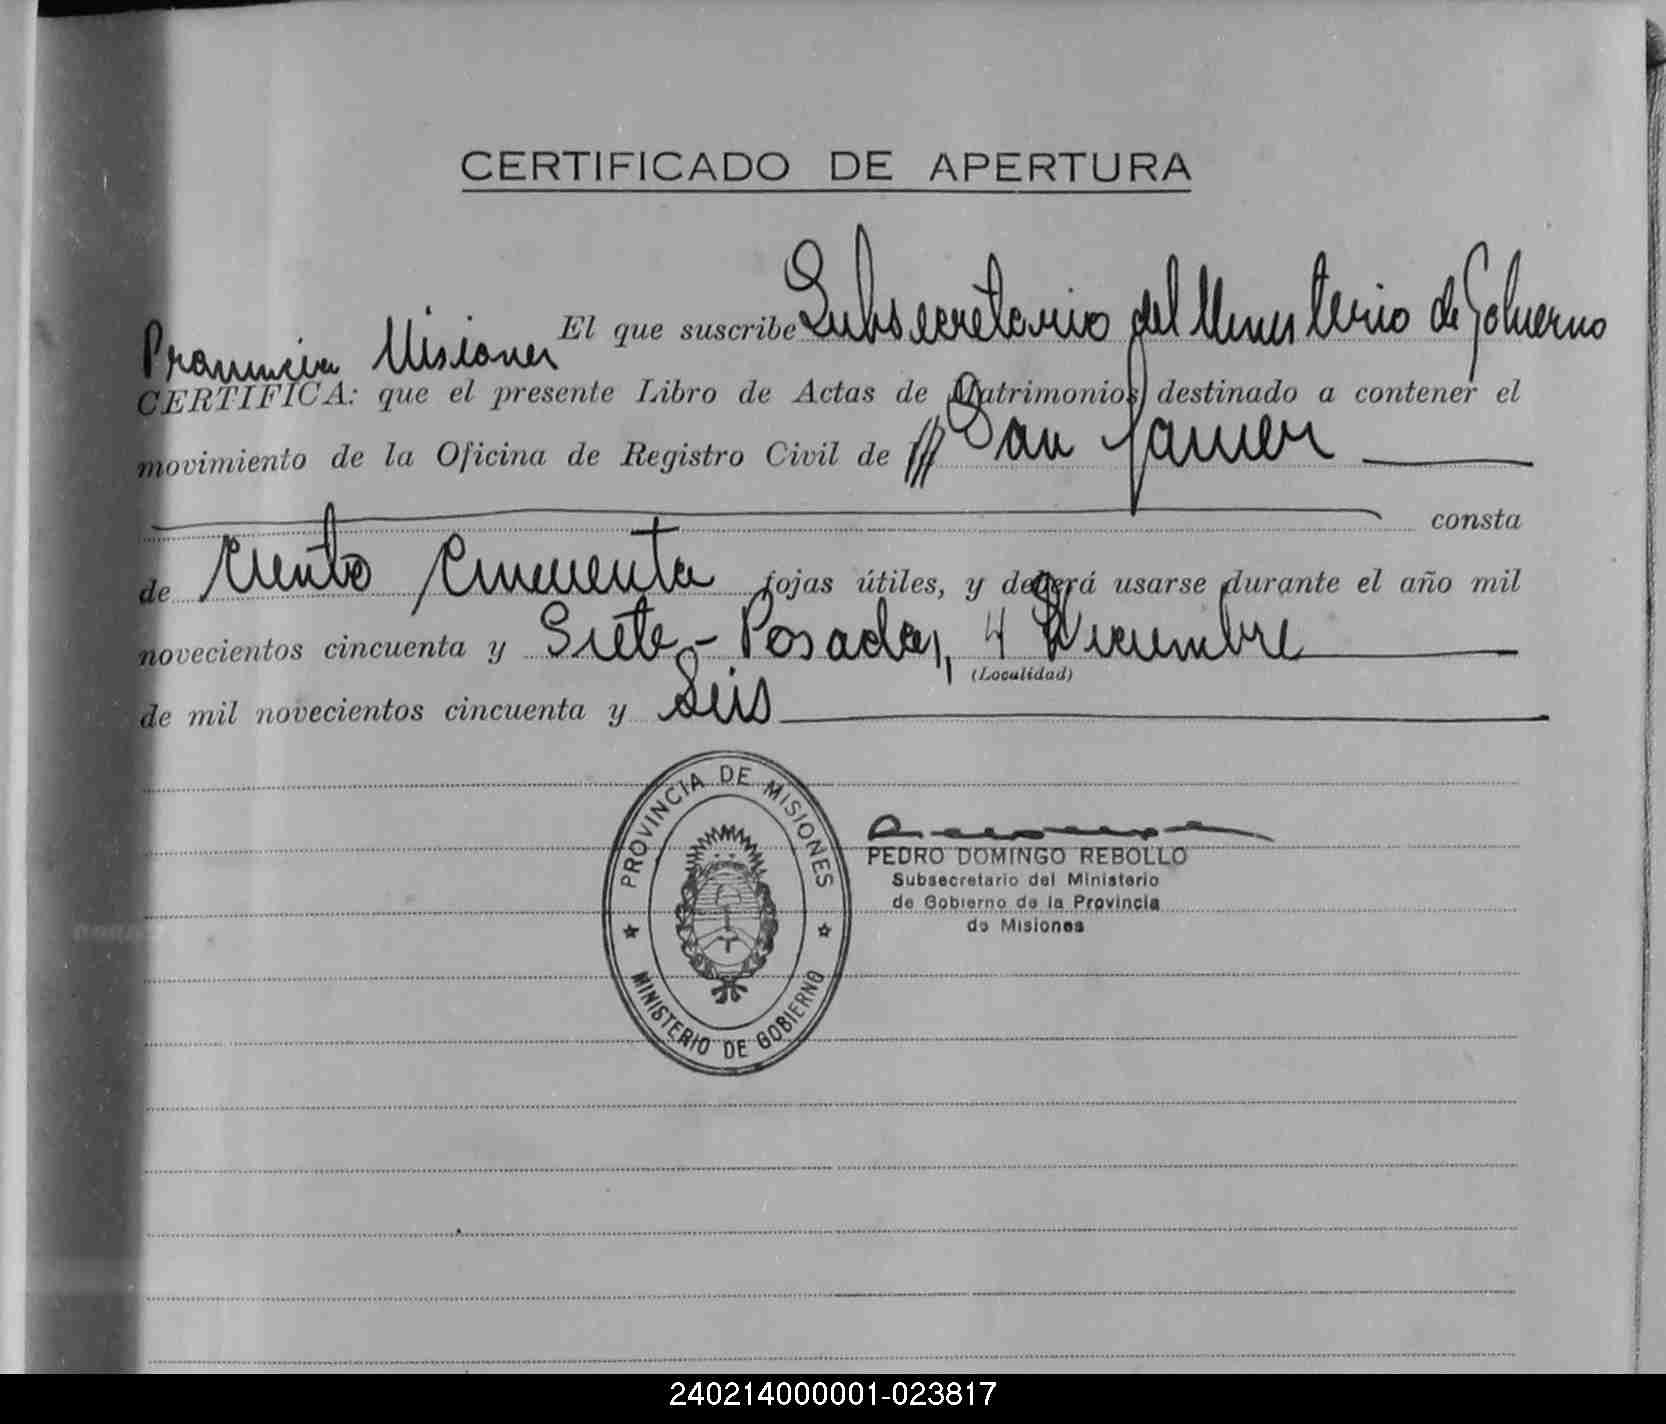 CERTIFICADO DE APERTURA
El que suscribe Subsecretario del Ministerio de Gobierno
Provincia Misiones
CERTIFICA: que el presente Libro de Actas de Matrimonios destinado a contener el
movimiento de la Oficina de Registro Civil de San Javier
consta
de Ciento Cincuenta fojas útiles, y deberá usarse durante el año mil
novecientos cincuenta y Siete - Posadas, 4 Diciembre
(Localidad)
de mil novecientos cincuenta y Seis
PROVINCIA DE MISIONES
MINISTERIO DE GOBIERNO
PEDRO DOMINGO REBOLLO
Subsecretario del Ministerio
de Gobierno de la Provincia
de Misiones
240214000001-023817